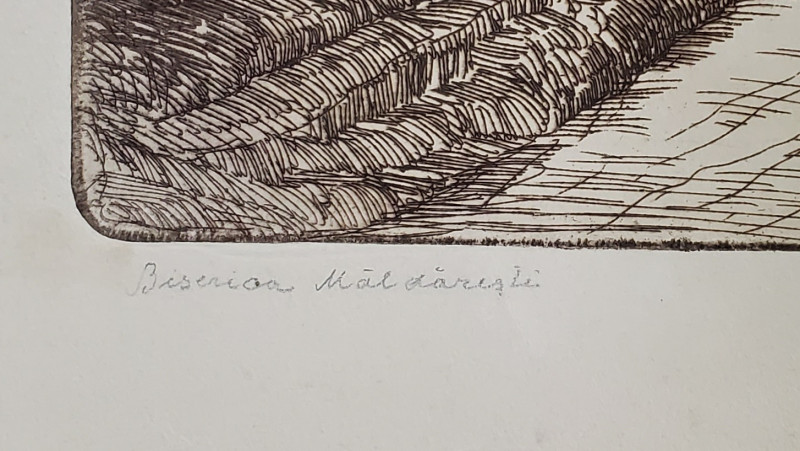 Biserica Măldărești